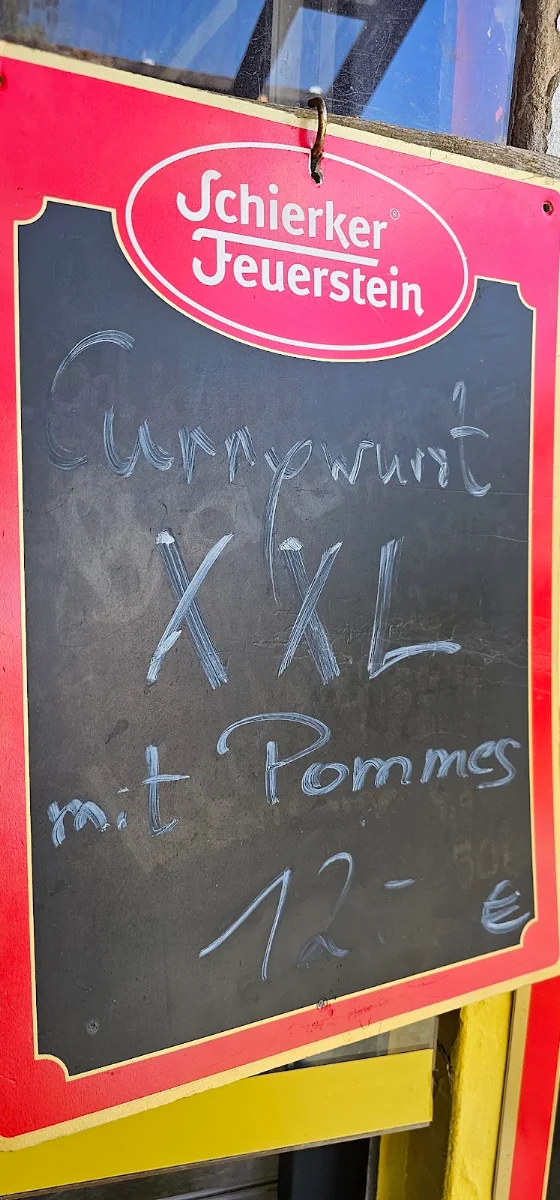 Schierker®
Feuerstein
Currywurst
XXL
mit Pommes
12,- €